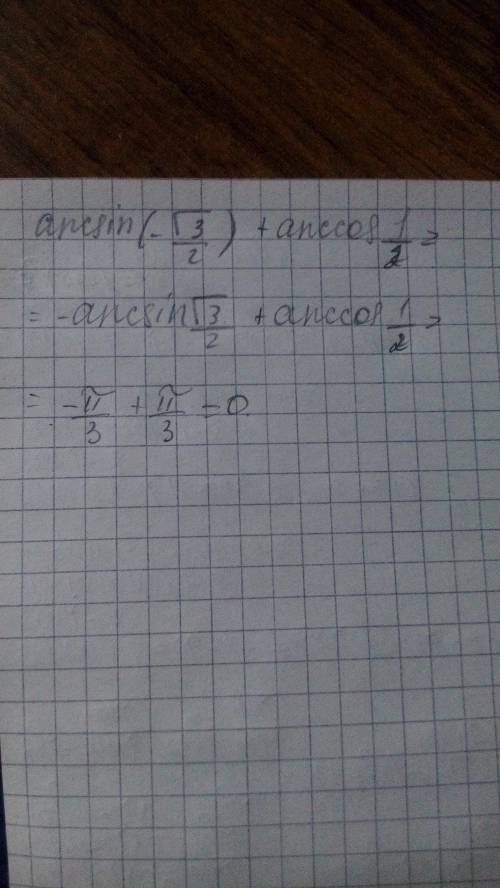 arcsin(-√3/2) + arccos 1/2 =
= -arcsin √3/2 + arccos 1/2 =
= -π/3 + π/3 = 0